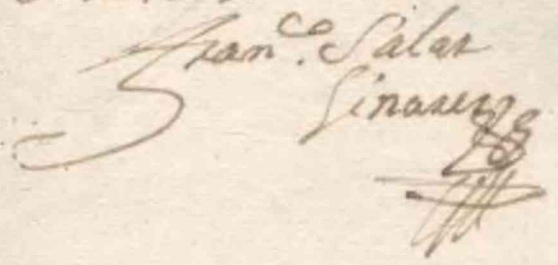 Fran.co Salas
Linares